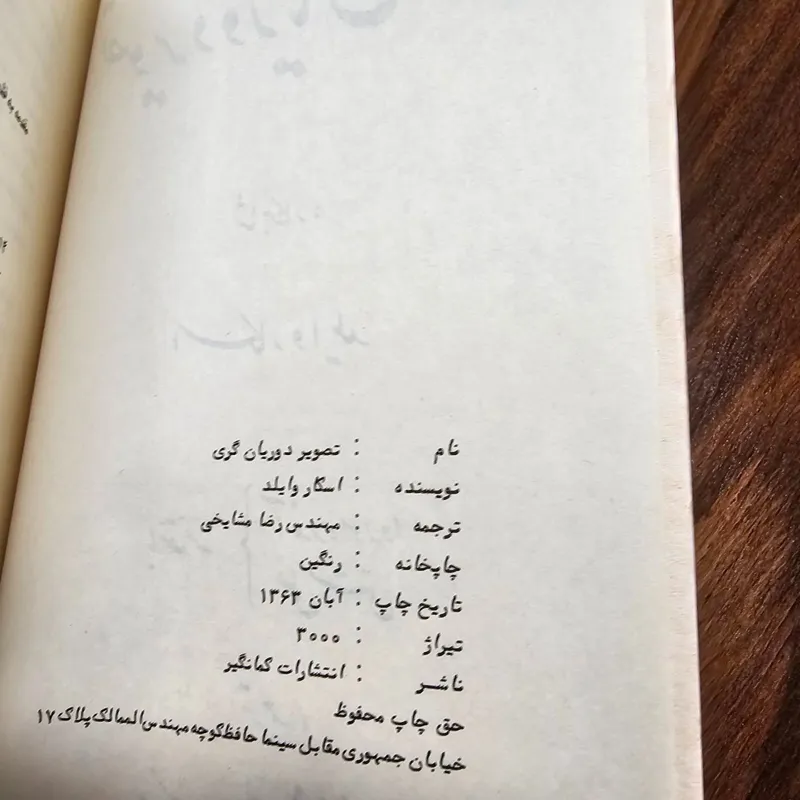 نام : تصویر دوریان گری
نویسنده : اسکار وایلد
ترجمه : مهندس رضا مشایخی
چاپخانه : رنگین
تاریخ چاپ : آبان ۱۳۶۳
تیراژ : ۳۰۰۰
ناشر : انتشارات کمانگیر
حق چاپ محفوظ
خیابان جمهوری مقابل سینما حافظ کوچه مهندس الممالک پلاک ۱۷